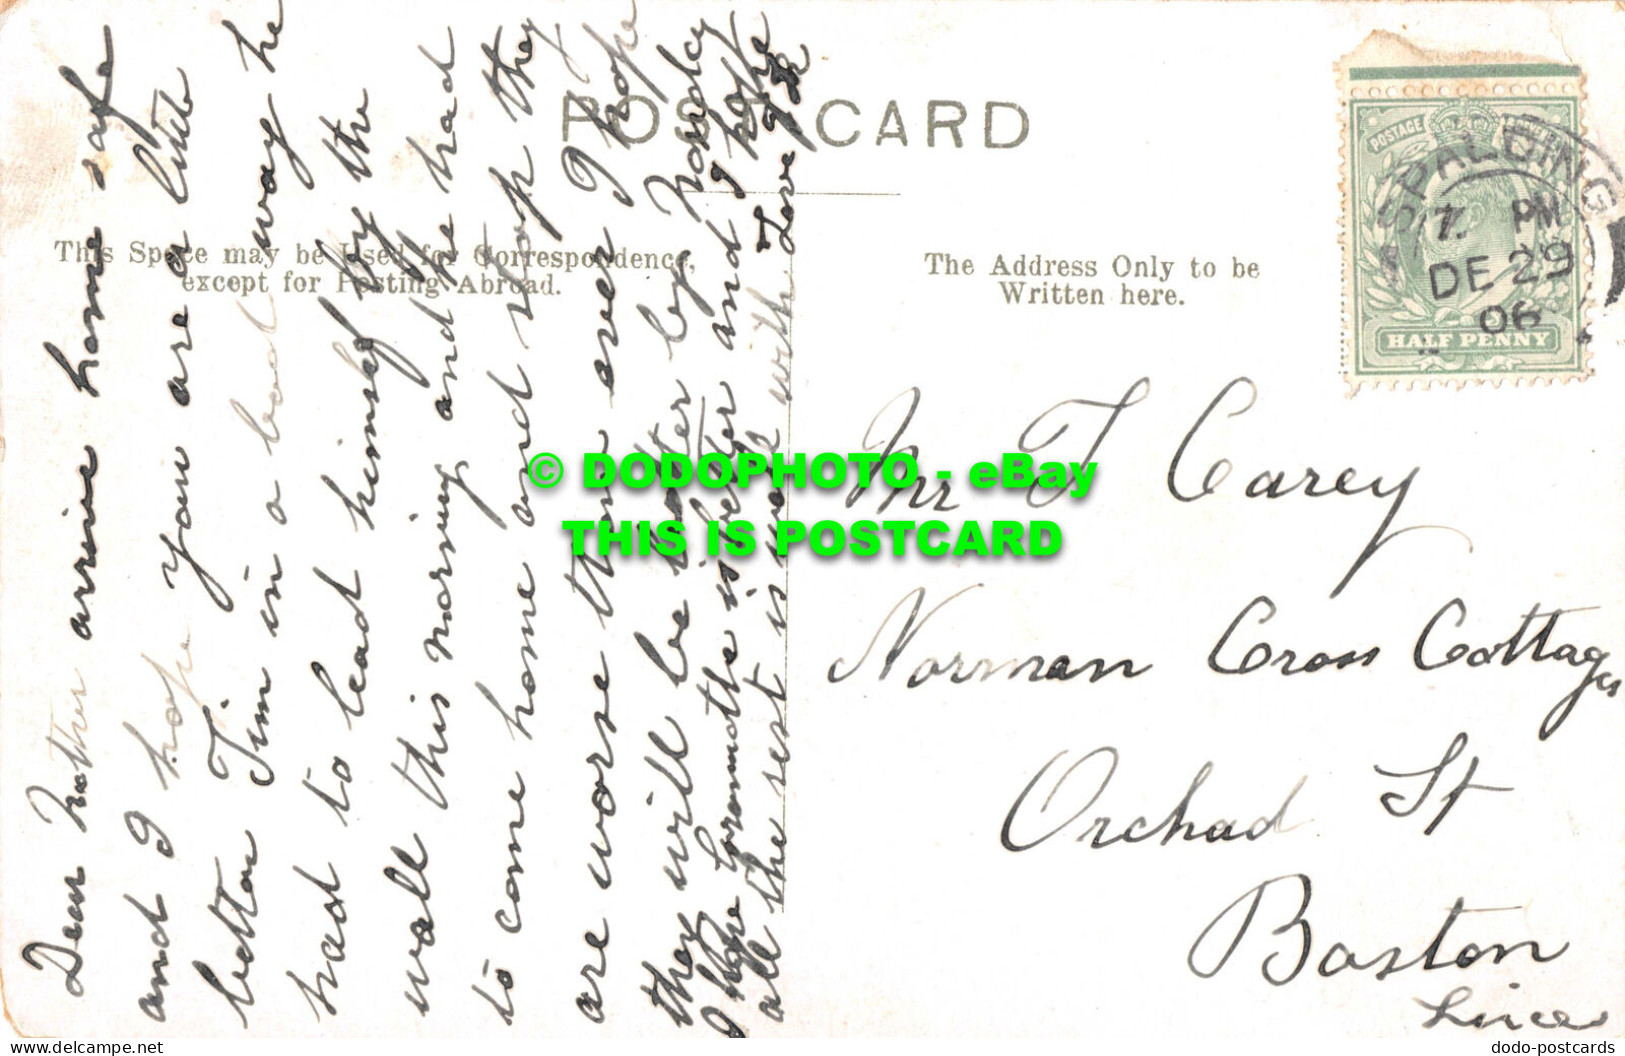 POST CARD
This Space may be Used for Correspondence,
except for Posting Abroad.
The Address Only to be
Written here.
POSTAGE
HALF PENNY
SPALDING
7. PM
DE 29
06
Dear Mother arrive home safe
and I hope you are a little
better Tim in a bad way he
had to lead himself by the
wall this morning and he had
to come home and shop they
are worse than ever I hope
they will be better by Monday
I hope Granmothe is better and I hope
all the rest is well with Love
Mr T Carey
Norman Cross Cottages
Orchad St
Boston
Lincs
© DODOPHOTO - eBay
THIS IS POSTCARD
delcampe.net
dodo-postcards